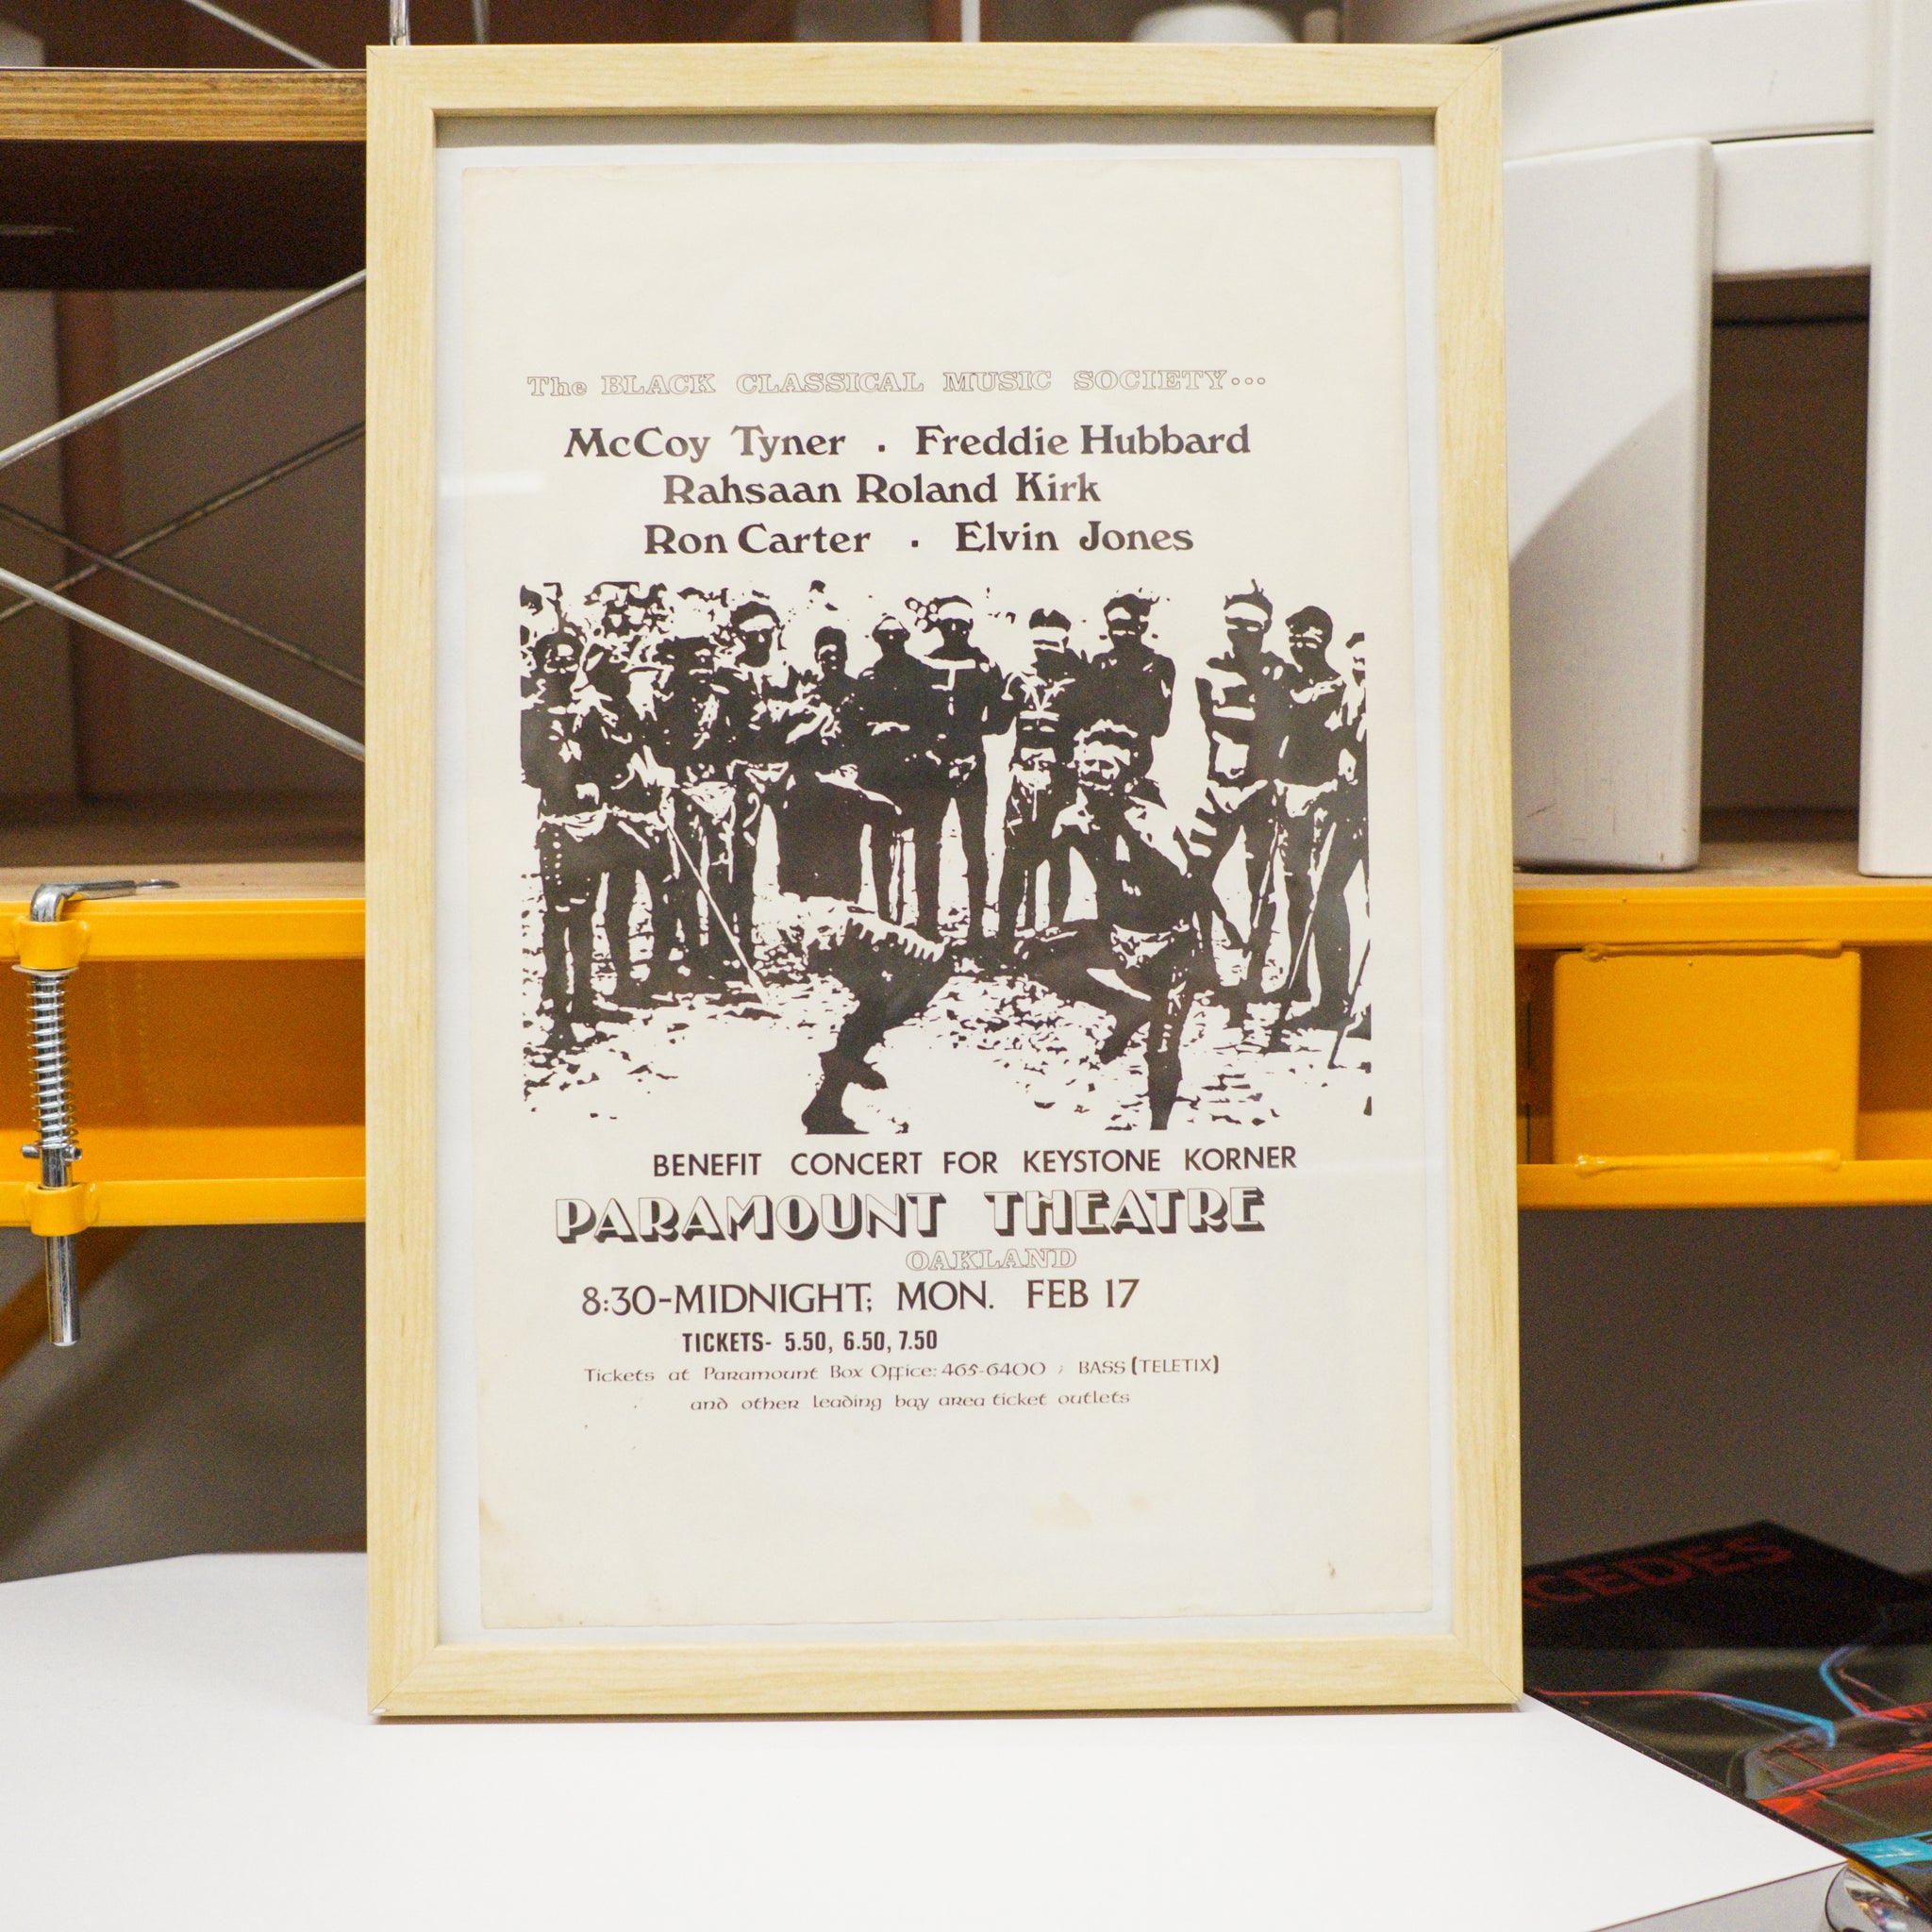 The BLACK CLASSICAL MUSIC SOCIETY...
McCoy Tyner . Freddie Hubbard
Rahsaan Roland Kirk
Ron Carter . Elvin Jones
BENEFIT CONCERT FOR KEYSTONE KORNER
PARAMOUNT THEATRE
OAKLAND
8:30-MIDNIGHT; MON. FEB 17
TICKETS- 5.50, 6.50, 7.50
Tickets at Paramount Box Office: 465-6400 ; BASS (TELETIX)
and other leading bay area ticket outlets
CEDES